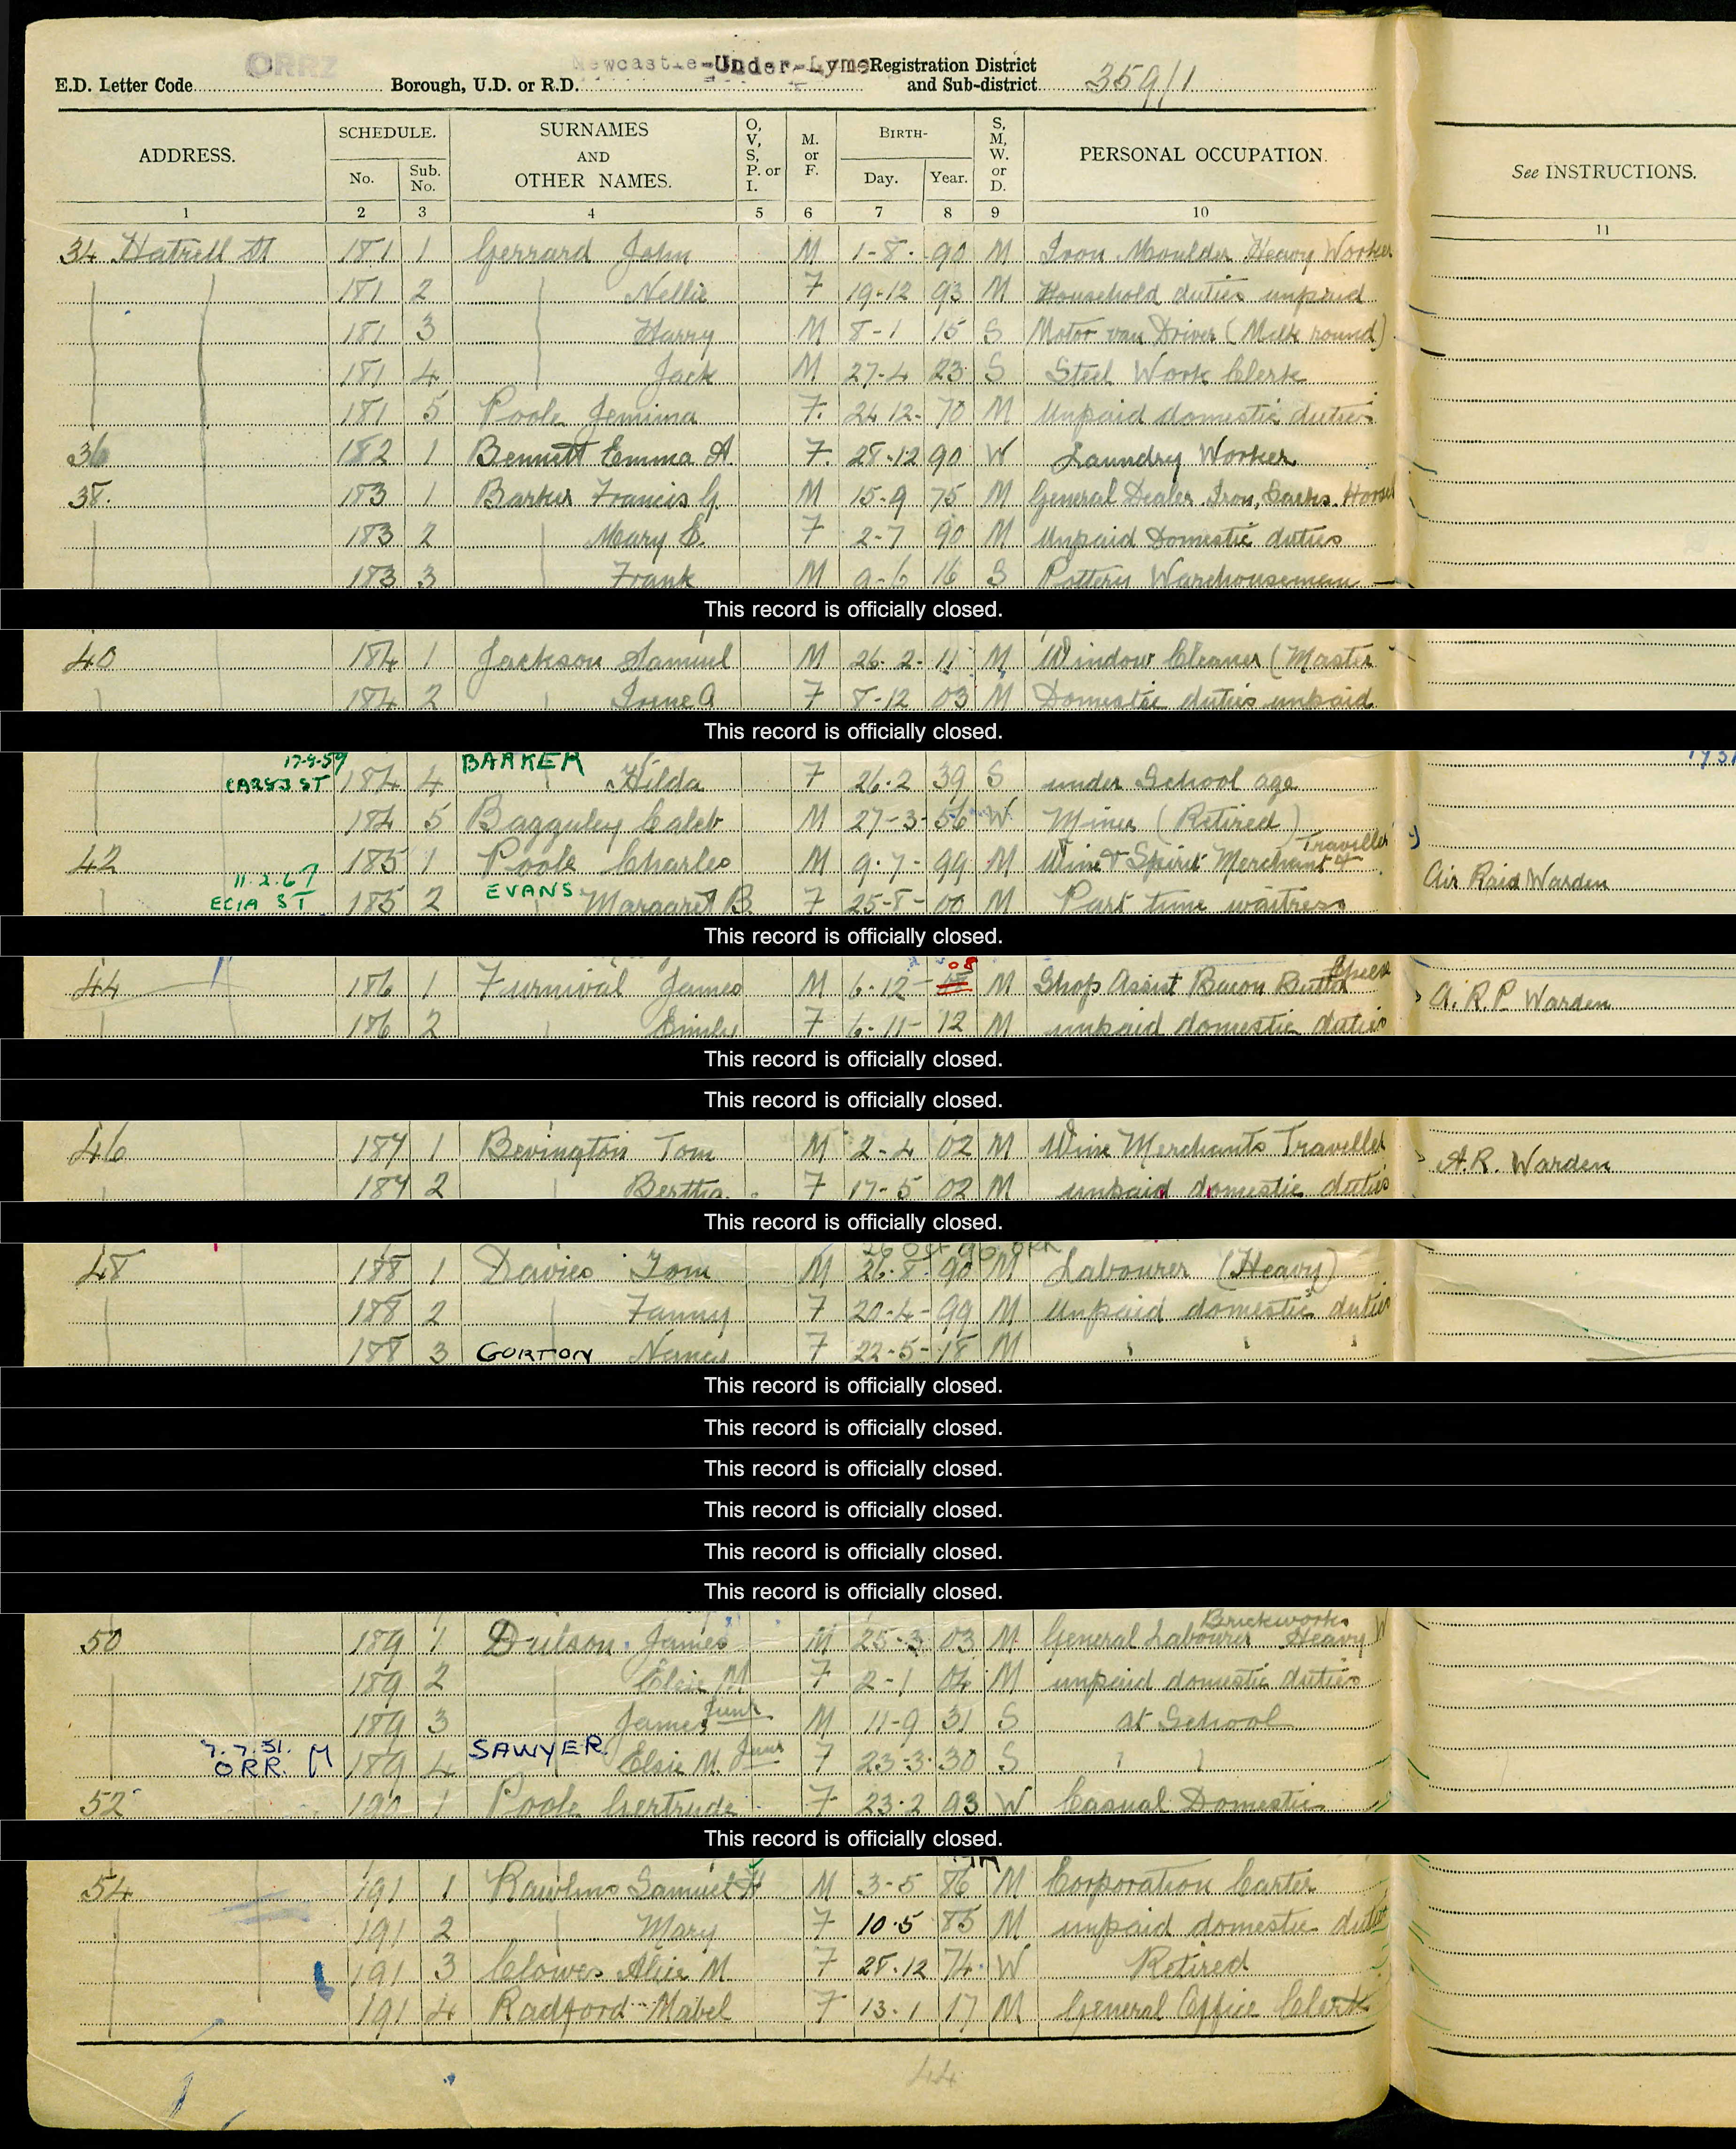 ORRZ Newcastle-Under-Lyme Registration District
E.D. Letter Code Borough, U.D. or R.D. and Sub-district 359/1
ADDRESS. SCHEDULE. No. Sub. No. SURNAMES AND OTHER NAMES. O, V, S, P. or I. M. or F. BIRTH- Day. Year. S, M, W. or D. PERSONAL OCCUPATION. See INSTRUCTIONS.
1 2 3 4 5 6 7 8 9 10 11
34 Hatrell St 181 1 Gerrard John M 1-8- 90 M Iron Moulder Heavy Worker
181 2 Nellie F 19-12 93 M Household duties unpaid
181 3 Harry M 8-1 15 S Motor van Driver (Milk round)
181 4 Jack M 27-4 23 S Steel Work Clerk
181 5 Poole Jemima F. 24-12- 70 M Unpaid domestic duties
36 182 1 Bennett Emma A. F. 28-12 90 W Laundry Worker
38. 183 1 Barker Francis G. M 15-9 75 M General Dealer Iron, Sacks. Horses
183 2 Mary E. F 2-7 90 M Unpaid Domestic duties
183 3 Frank M 9-6 16 S Pottery Warehouseman
This record is officially closed.
40 184 1 Jackson Samuel M 26-2-11 M Window Cleaner (Master
184 2 Irene A F 8-12 03 M Domestic duties unpaid
This record is officially closed.
17-9-59 BARKER
184 4 Hilda F 26-2 39 S under School age
184 5 Bagguley Caleb M 27-3-56 W Miner (Retired)
Traveller
42 185 1 Poole Charles M 9-7-99 M Wine & Spirit Merchant Air Raid Warden
11.2.67 EVANS
185 2 Margaret B. F 25-8-00 M Part time waitress
This record is officially closed.
08
44 186 1 Furnival James M 6-12- M Shop Assist Bacon Butter A.R.P. Warden
186 2 Emily F 6-11-12 M unpaid domestic duties
This record is officially closed.
This record is officially closed.
46 187 1 Bevington Tom M 2-4 02 M Wine Merchants Traveller A.R. Warden
187 2 Bertha F 17-5 02 M unpaid domestic duties
This record is officially closed.
48 188 1 Davies Tom M 26-8-90 M Labourer (Heavy)
188 2 Fanny F 20-4-99 M Unpaid domestic duties
188 3 GORTON Nancy F 22-5-18 M " " "
This record is officially closed.
This record is officially closed.
This record is officially closed.
This record is officially closed.
This record is officially closed.
This record is officially closed.
Brickworks
50 189 1 Dulson James M 25-3 03 M General Labourer Heavy W
189 2 Elsie M F 2-1 04 M unpaid domestic duties
189 3 James Junr M 11-9 31 S at School
7.7.51. SAWYER
ORR. M 189 4 Elsie M. Junr F 23-3-30 S " "
52 190 1 Poole Gertrude F 23-2 93 W Casual Domestic
This record is officially closed.
54 191 1 Rawlins Samuel M 3-5 86 M Corporation Carter
191 2 Mary F 10-5 85 M unpaid domestic duties
191 3 Clowes Alice M. F 28-12 74 W Retired
191 4 Radford Mabel F 13-1 17 M General Office Clerk
44